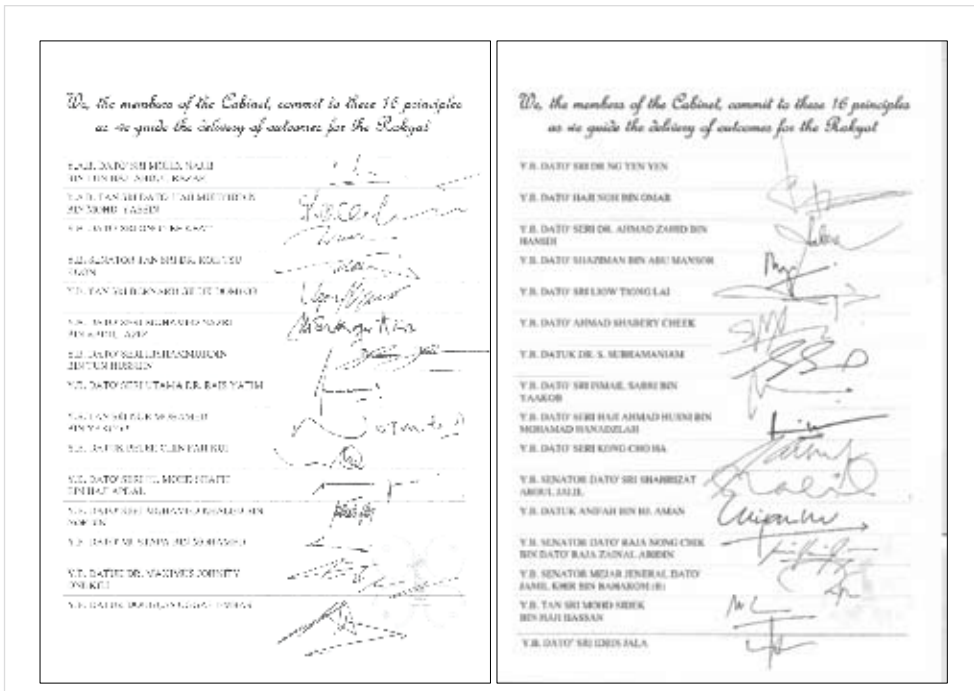 We, the members of the Cabinet, commit to these 16 principles
as we guide the delivery of outcomes for the Rakyat
Y.A.B. DATO' SRI MOHD. NAJIB
BIN TUN HAJI ABDUL RAZAK
Y.A.B. TAN SRI DATO' HAJI MUHYIDDIN
BIN MOHD. YASSIN
Y.B. DATO' SRI ONG TEE KEAT
Y.B. SENATOR TAN SRI DR. KOH TSU
KOON
Y.B. TAN SRI BERNARD GILUK DOMPOK
Y.B. DATO' SERI MOHAMED NAZRI
BIN ABDUL AZIZ
Y.B. DATO' SERI HISHAMMUDDIN
BIN TUN HUSSEIN
Y.B. DATO' SERI UTAMA DR. RAIS YATIM
Y.B. TAN SRI NOR MOHAMED
BIN YAKCOP
Y.B. DATUK PETER CHIN FAH KUI
Y.B. DATO' SERI HJ. MOHD SHAFIE
BIN HAJI APDAL
Y.B. DATO' SERI MOHAMED KHALED BIN
NORDIN
Y.B. DATO' MUSTAPA BIN MOHAMED
Y.B. DATUK DR. MAXIMUS JOHNITY
ONGKILI
Y.B. DATUK DOUGLAS UGGAH EMBAS
We, the members of the Cabinet, commit to these 16 principles
as we guide the delivery of outcomes for the Rakyat
Y.B. DATO' SRI DR NG YEN YEN
Y.B. DATO' HAJI NOH BIN OMAR
Y.B. DATO' SERI DR. AHMAD ZAHID BIN
HAMIDI
Y.B. DATO' SHAZIMAN BIN ABU MANSOR
Y.B. DATO' SRI LIOW TIONG LAI
Y.B. DATO' AHMAD SHABERY CHEEK
Y.B. DATUK DR. S. SUBRAMANIAM
Y.B. DATO' SRI ISMAIL SABRI BIN
YAAKOB
Y.B. DATO' SERI HAJI AHMAD HUSNI BIN
MOHAMAD HANADZLAH
Y.B. DATO' SERI KONG CHO HA
Y.B. SENATOR DATO' SRI SHAHRIZAT
ABDUL JALIL
Y.B. DATUK ANIFAH BIN HJ. AMAN
Y.B. SENATOR DATO' RAJA NONG CHIK
BIN DATO' RAJA ZAINAL ABIDIN
Y.B. SENATOR MEJAR JENERAL DATO'
JAMIL KHIR BIN BAHAROM (B)
Y.B. TAN SRI MOHD SIDEK
BIN HAJI HASSAN
Y.B. DATO' SRI IDRIS JALA